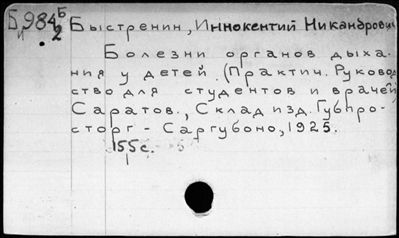 Б 984 Б
и 2
Быстренин, Иннокентий Никандрович
Болезни органов дыха-
ния у детей. (Практич. Руковод
ство для студентов и врачей
Саратов., Склад изд. Губпро-
сторг - Саргубоно, 1925.
155 с.